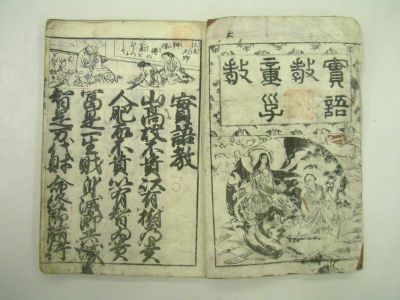 實語
教
童子
教
實語教
山高故不貴以有樹為貴
人肥故不貴以有智為貴
富是一生財身滅即共滅
智是万代財命終即随行